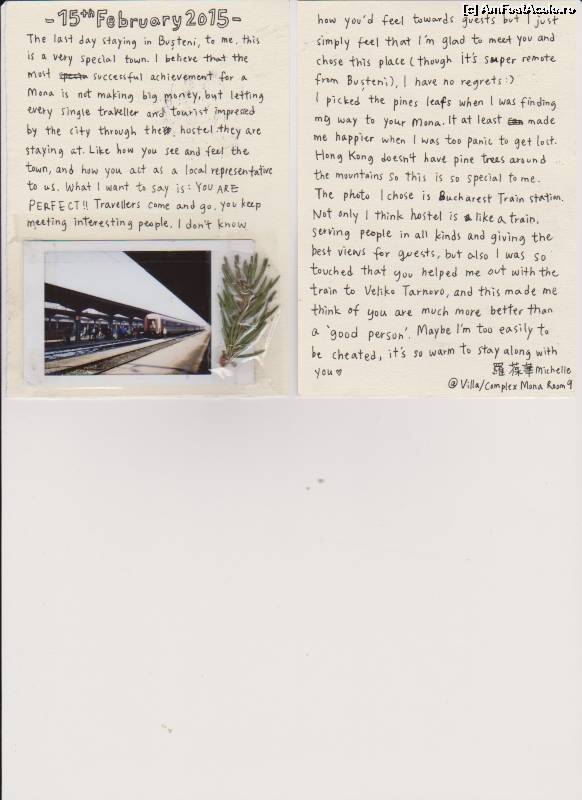 [C] AmFostAcolo.ro
-15th February 2015-
The last day staying in Bușteni, to me, this
is a very special town. I believe that the
most successful achievement for a
Mona is not making big money, but letting
every single traveller and tourist impressed
by the city through the hostel they are
staying at. Like how you see and feel the
town, and how you act as a local representative
to us. What I want to say is: YOU ARE
PERFECT!! Travellers come and go, you keep
meeting interesting people. I don't know
how you'd feel towards guests but I just
simply feel that I'm glad to meet you and
chose this place (though it's super remote
from Bușteni), I have no regrets:)
I picked the pines leafs when I was finding
my way to your Mona. It at least made
me happier when I was too panic to get lost.
Hong Kong doesn't have pine trees around
the mountains so this is so special to me.
The photo I chose is Bucharest Train station.
Not only I think hostel is like a train,
serving people in all kinds and giving the
best views for guests, but also I was so
touched that you helped me out with the
train to Veliko Tarnovo, and this made me
think of you are much more better than
a 'good person'. Maybe I'm too easily to
be cheated, it's so warm to stay along with
you♥
羅葆華 Michelle
@Villa/Complex Mona Room 9